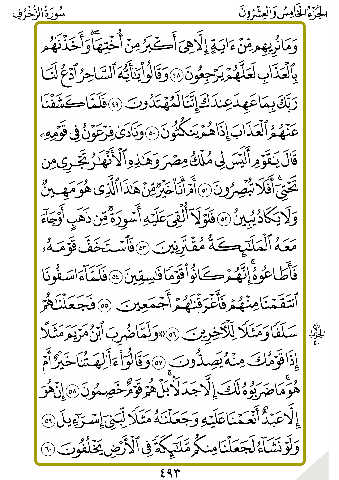 الجزء الخامس والعشرون
سورة الزخرف
وَمَا نُرِيهِم مِّنْ ءَايَةٍ إِلَّا هِىَ أَكْبَرُ مِنْ أُخْتِهَا ۖ وَأَخَذْنَٰهُم
بِٱلْعَذَابِ لَعَلَّهُمْ يَرْجِعُونَ ٤٨ وَقَالُوا۟ يَٰٓأَيُّهَ ٱلسَّاحِرُ ٱدْعُ لَنَا
رَبَّكَ بِمَا عَهِدَ عِندَكَ إِنَّنَا لَمُهْتَدُونَ ٤٩ فَلَمَّا كَشَفْنَا
عَنْهُمُ ٱلْعَذَابَ إِذَا هُمْ يَنكُثُونَ ٥٠ وَنَادَىٰ فِرْعَوْنُ فِى قَوْمِهِۦ
قَالَ يَٰقَوْمِ أَلَيْسَ لِى مُلْكُ مِصْرَ وَهَٰذِهِ ٱلْأَنْهَٰرُ تَجْرِى مِن
تَحْتِىٓ ۖ أَفَلَا تُبْصِرُونَ ٥١ أَمْ أَنَا۠ خَيْرٌ مِّنْ هَٰذَا ٱلَّذِى هُوَ مَهِينٌ
وَلَا يَكَادُ يُبِينُ ٥٢ فَلَوْلَآ أُلْقِىَ عَلَيْهِ أَسْوِرَةٌ مِّن ذَهَبٍ أَوْ جَآءَ
مَعَهُ ٱلْمَلَٰٓئِكَةُ مُقْتَرِنِينَ ٥٣ فَٱسْتَخَفَّ قَوْمَهُۥ
فَأَطَاعُوهُ ۚ إِنَّهُمْ كَانُوا۟ قَوْمًا فَٰسِقِينَ ٥٤ فَلَمَّآ ءَاسَفُونَا
ٱنتَقَمْنَا مِنْهُمْ فَأَغْرَقْنَٰهُمْ أَجْمَعِينَ ٥٥ فَجَعَلْنَٰهُمْ
سَلَفًا وَمَثَلًا لِّلْءَاخِرِينَ ٥٦ وَلَمَّا ضُرِبَ ٱبْنُ مَرْيَمَ مَثَلًا
إِذَا قَوْمُكَ مِنْهُ يَصِدُّونَ ٥٧ وَقَالُوٓا۟ ءَأَٰلِهَتُنَا خَيْرٌ أَمْ
هُوَ ۚ مَا ضَرَبُوهُ لَكَ إِلَّا جَدَلًۢا ۚ بَلْ هُمْ قَوْمٌ خَصِمُونَ ٥٨ إِنْ هُوَ
إِلَّا عَبْدٌ أَنْعَمْنَا عَلَيْهِ وَجَعَلْنَٰهُ مَثَلًا لِّبَنِىٓ إِسْرَٰٓءِيلَ ٥٩
وَلَوْ نَشَآءُ لَجَعَلْنَا مِنكُم مَّلَٰٓئِكَةً فِى ٱلْأَرْضِ يَخْلُفُونَ ٦٠
٤٩٣